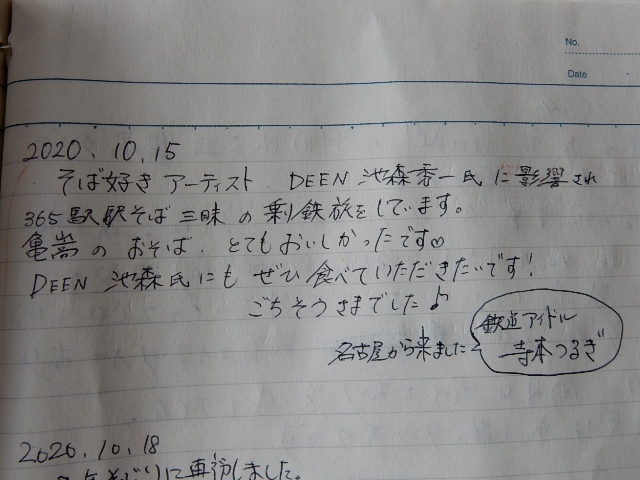 No.
Date
2020.10.15
そば好きアーティスト DEEN 池森秀一氏に影響され
365駅駅そば三昧の乗鉄旅をしています。
亀嵩のおそば、とてもおいしかったです♡
DEEN 池森氏にもぜひ食べていただきたいです!
ごちそうさまでした♪
名古屋から来ました
鉄道アイドル
寺本つるぎ
2020.10.18
ぶりに再訪しました。